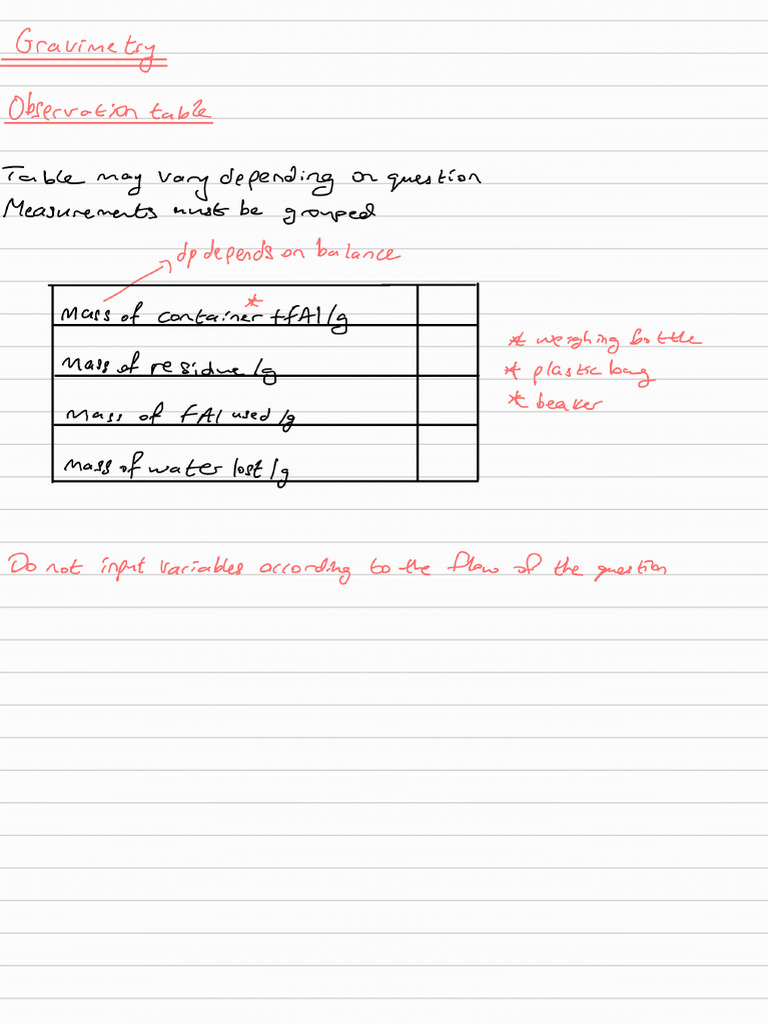 Gravimetry
Observation table
Table may vary depending on question
Measurements must be grouped
dp depends on balance
Mass of container * + FA1/g
Mass of residue/g
Mass of FA1 used/g
Mass of water lost/g
* weighing bottle
* plastic bag
* beaker
Do not input variables according to the flow of the question